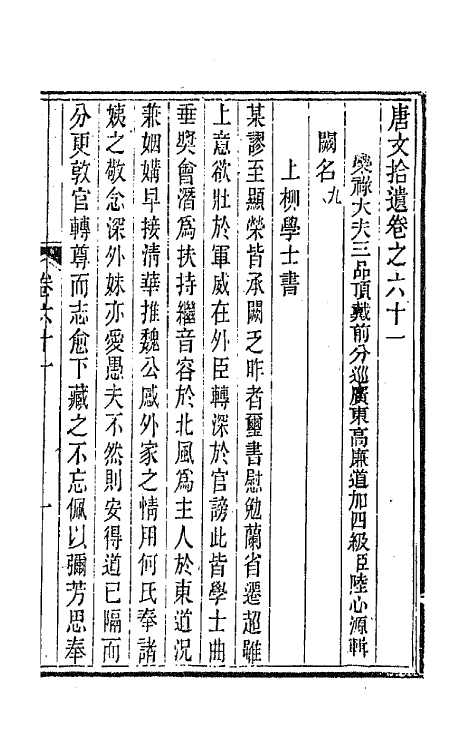 唐文拾遺卷之六十一
榮祿大夫三品頂戴前分巡廣東高廉道加四級臣陸心源輯
闕名九
上柳學士書
某謬至顯榮皆承闕乏昨者璽書慰勉蘭省遷超雖
上意欲壯於軍威在外臣轉深於官謗此皆學士曲
垂奬會潛爲扶持繼音容於北風爲主人於東道況
兼姻媾早接清華推魏公感外家之情用何氏奉諸
姨之敬念深外妹亦愛愚夫不然則安得道已隔而
分更敦官轉尊而志愈下藏之不忘佩以彌芳思奉
卷六十一
一